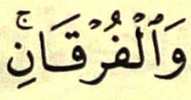 وَٱلْفُرْقَانِۚ